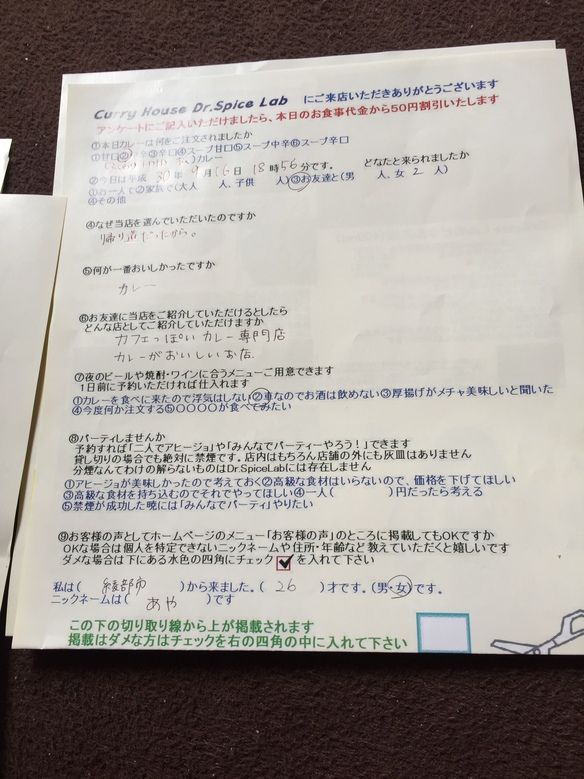 Curry House Dr.Spice Lab にご来店いただきありがとうございます
アンケートにご記入いただけましたら、本日のお食事代金から50円割引いたします
①本日カレーは何をご注文されましたか
①甘口②中辛③辛口④スープ甘口⑤スープ中辛⑥スープ辛口
カレー
②今日は平成 30 年 9 月 16 日 18 時 56 分です。 どなたと来られましたか
①お一人で②家族で(大人 人、子供 人)③お友達と(男 人、女 2 人)
④その他
④なぜ当店を選んでいただいたのですか
帰り道だったから。
⑤何が一番おいしかったですか
カレー
⑥お友達に当店をご紹介していただけるとしたら
どんな店としてご紹介していただけますか
カフェっぽいカレー専門店
カレーがおいしいお店
⑦夜のビールや焼酎・ワインに合うメニューご用意できます
1日前に予約いただければ仕入れます
①カレーを食べに来たので浮気はしない②車なのでお酒は飲めない③厚揚げがメチャ美味しいと聞いた
④今度何か注文する⑤○○○○が食べてみたい
⑧パーティしませんか
予約すれば「二人でアヒージョ」や「みんなでパーティーやろう!」できます
貸し切りの場合でも絶対に禁煙です。店内はもちろん店舗の外にも灰皿はありません
分煙なんてわけの解らないものはDr.SpiceLabには存在しません
①アヒージョが美味しかったので考えておく②高級な食材はいらないので、価格を下げてほしい
③高級な食材を持ち込むのでそれでやってほしい④一人( )円だったら考える
⑤禁煙が成功した暁には「みんなでパーティ」やりたい
⑨お客様の声としてホームページのメニュー「お客様の声」のところに掲載してもOKですか
OKな場合は個人を特定できないニックネームや住所・年齢など教えていただくと嬉しいです
ダメな場合は下にある水色の四角にチェック を入れて下さい
私は( 綾部市 )から来ました。( 26 )才です。(男・女)です。
ニックネームは( あや )です
この下の切り取り線から上が掲載されます
掲載はダメな方はチェックを右の四角の中に入れて下さい